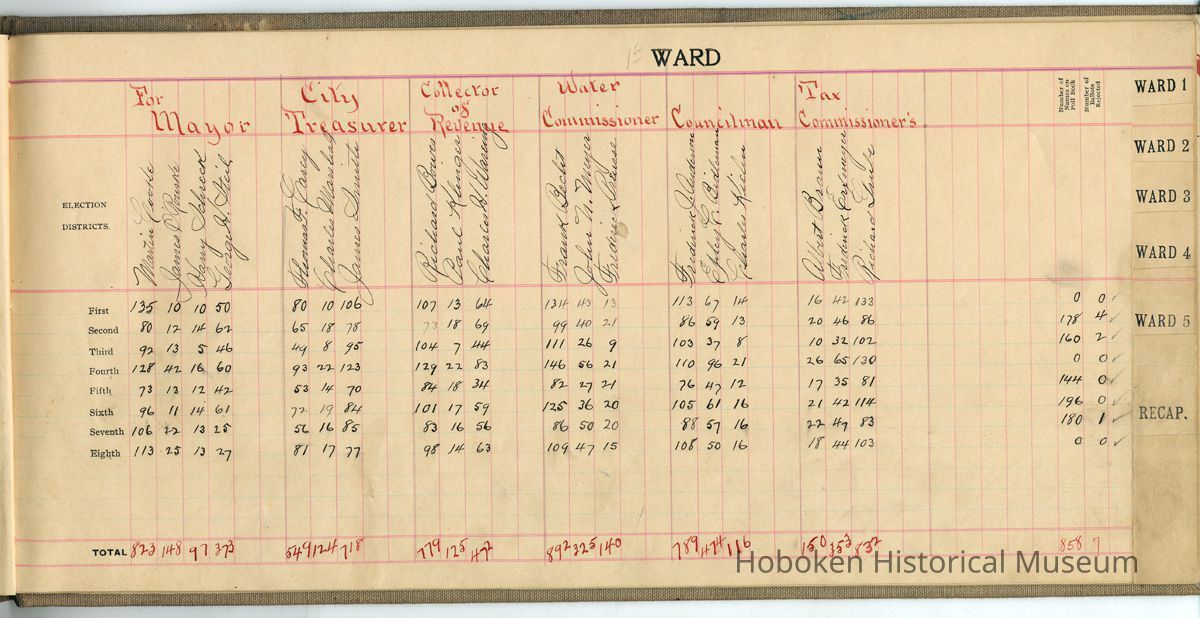 1st WARD
For Mayor City Treasurer Collector of Revenue Water Commissioner Councilman Tax Commissioner's Number of Names on Poll Book Number of Ballots Rejected
ELECTION DISTRICTS.
Martin Cooke James P. Harry Schreck George H. Steil Thomas F. Carey Charles James Smith Richard Paul Klinger Charles H. Frank Becht John N. Meyer Frederick Frederick J. C. Charles Albert Brown Fredrick Richard
First 135 10 10 50 80 10 106 107 13 64 134 43 13 113 67 14 16 42 133 0 0 ✓
Second 80 12 14 62 65 18 78 73 18 69 99 40 21 86 59 13 20 46 86 178 4 ✓
Third 92 13 5 46 49 8 95 104 7 44 111 26 9 103 37 8 10 32 102 160 2 ✓
Fourth 128 42 16 60 93 22 123 129 22 83 146 56 21 110 96 21 26 65 130 0 0 ✓
Fifth 73 13 12 42 53 14 70 84 18 34 82 27 21 76 47 12 17 35 81 144 0 ✓
Sixth 96 11 14 61 72 19 84 101 17 59 125 36 20 105 61 16 21 42 114 196 0 ✓
Seventh 106 22 13 25 56 16 85 83 16 56 86 50 20 88 57 16 22 47 83 180 1 ✓
Eighth 113 25 13 27 81 17 77 98 14 63 109 47 15 108 50 16 18 44 103 0 0 ✓
TOTAL 823 148 97 373 549 124 718 779 125 472 892 325 140 789 474 116 150 353 832 858 7
WARD 1
WARD 2
WARD 3
WARD 4
WARD 5
RECAP.
Hoboken Historical Museum